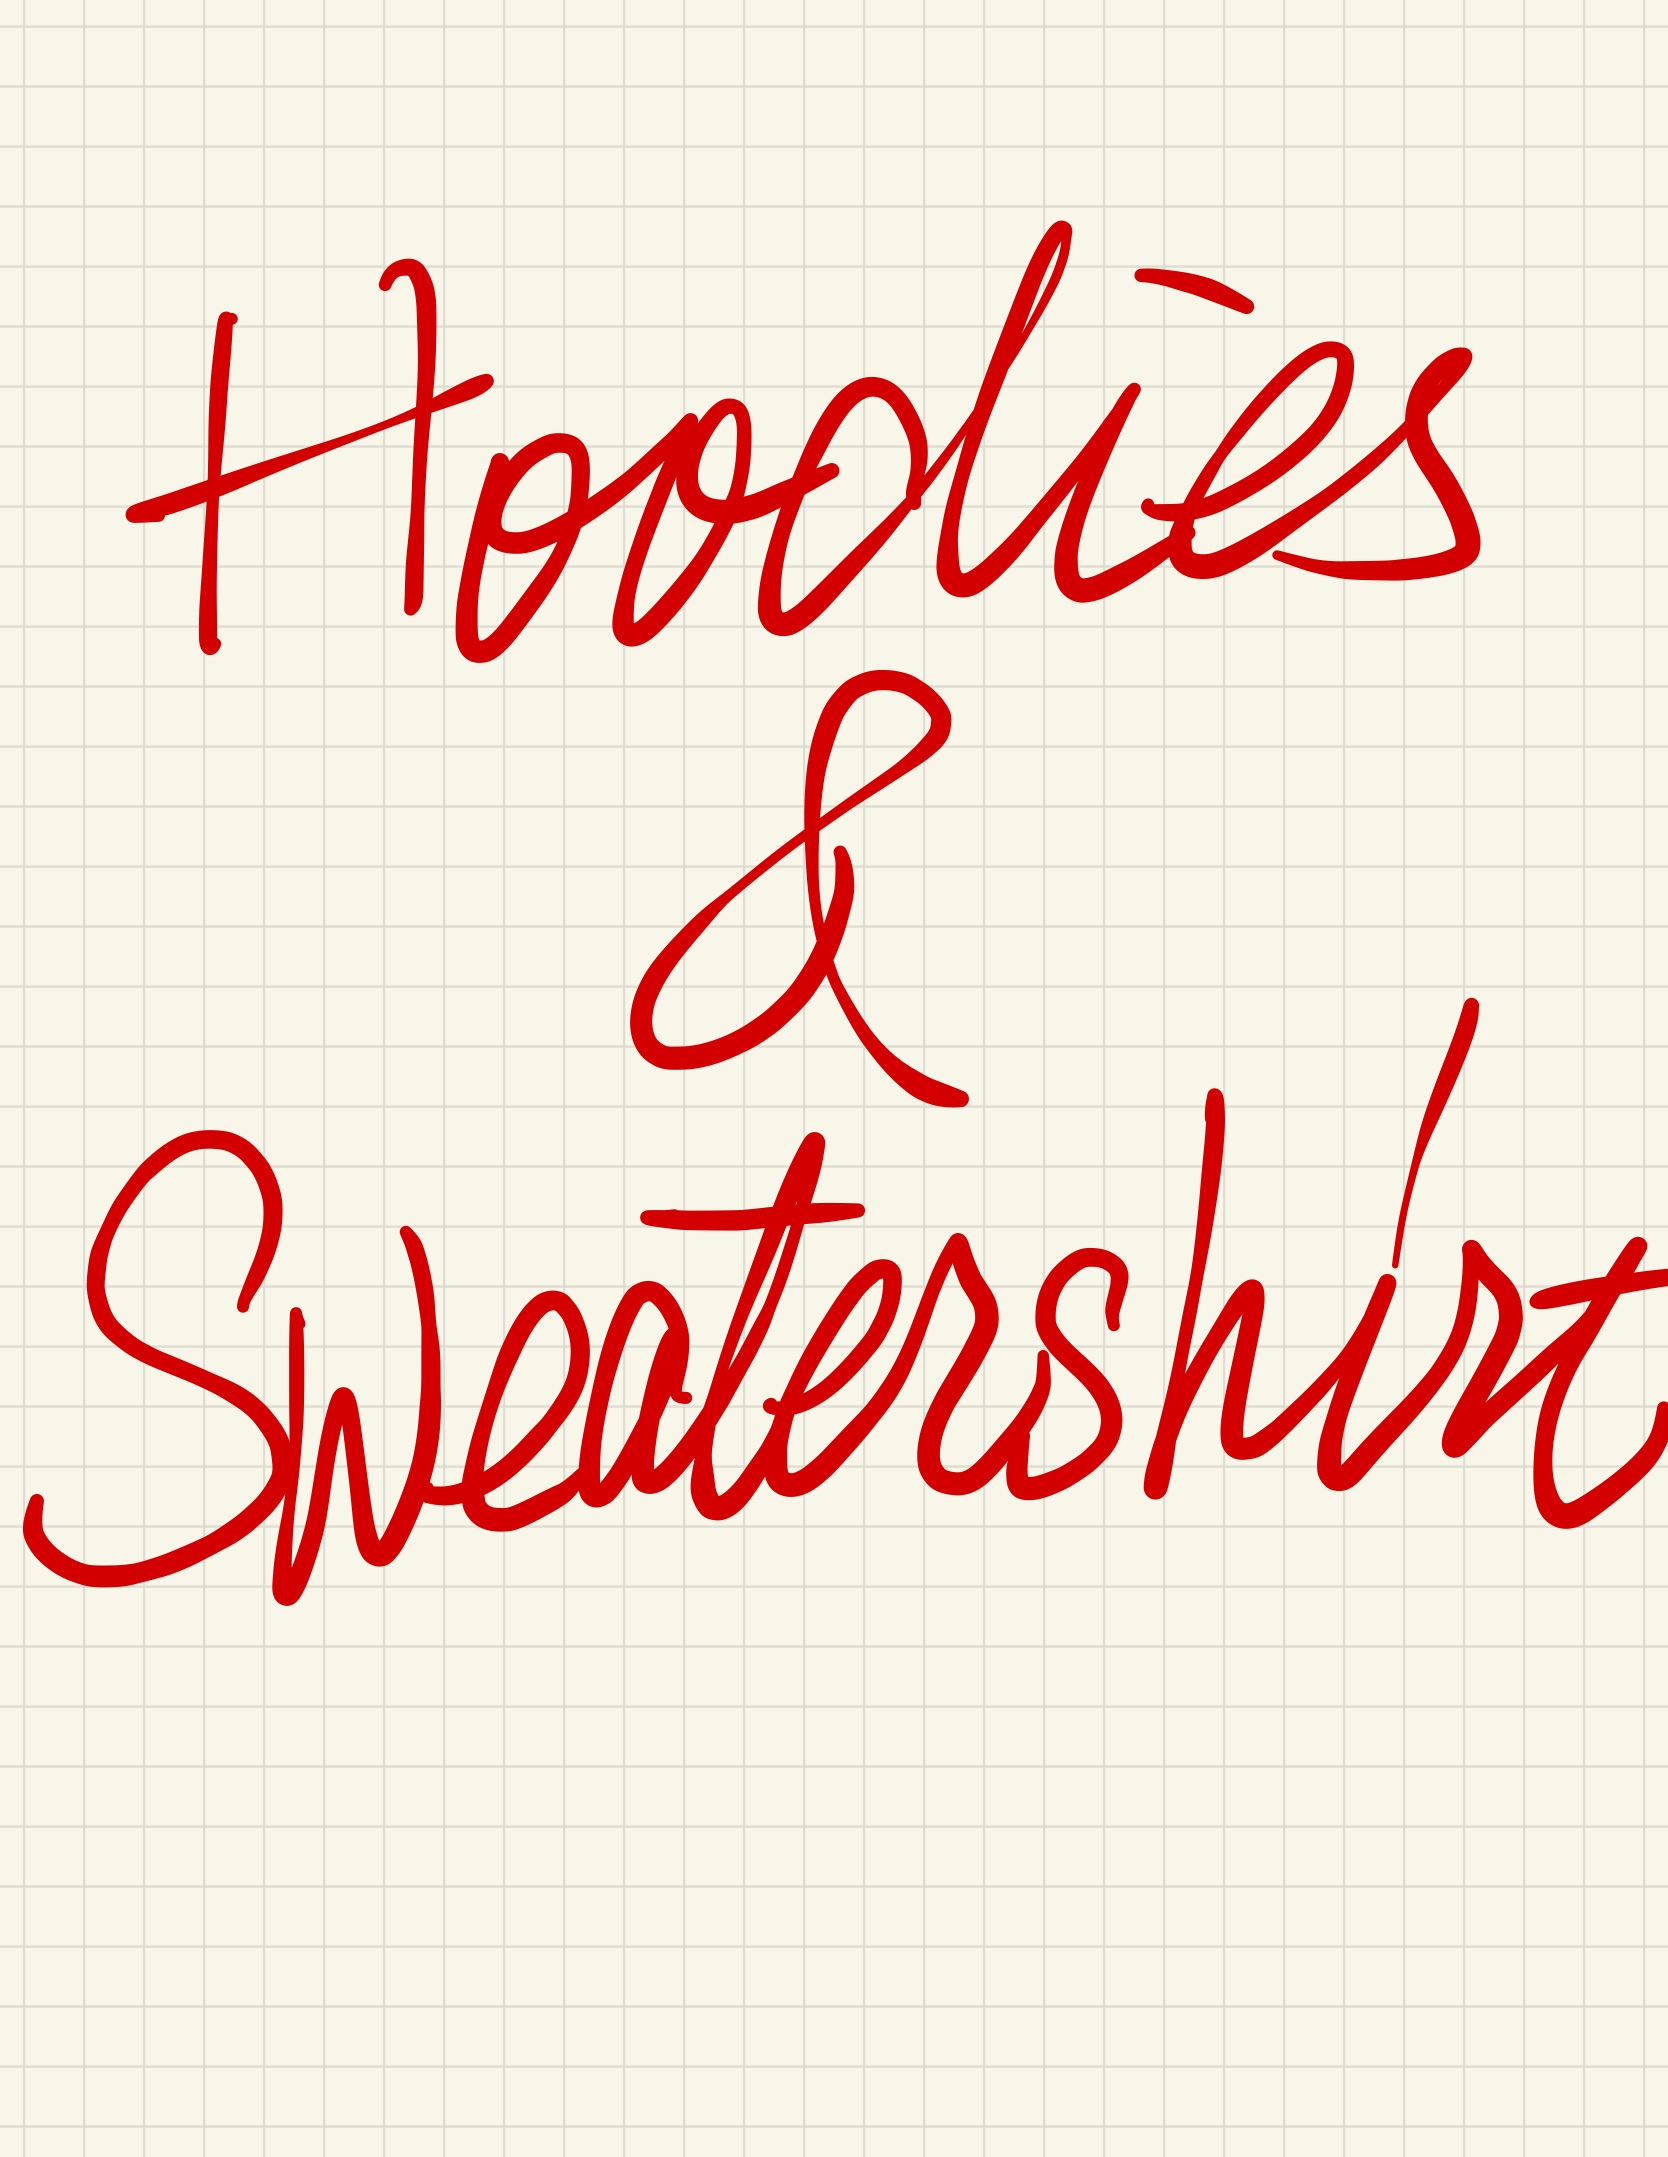 Hoodies
&
Sweatershirt